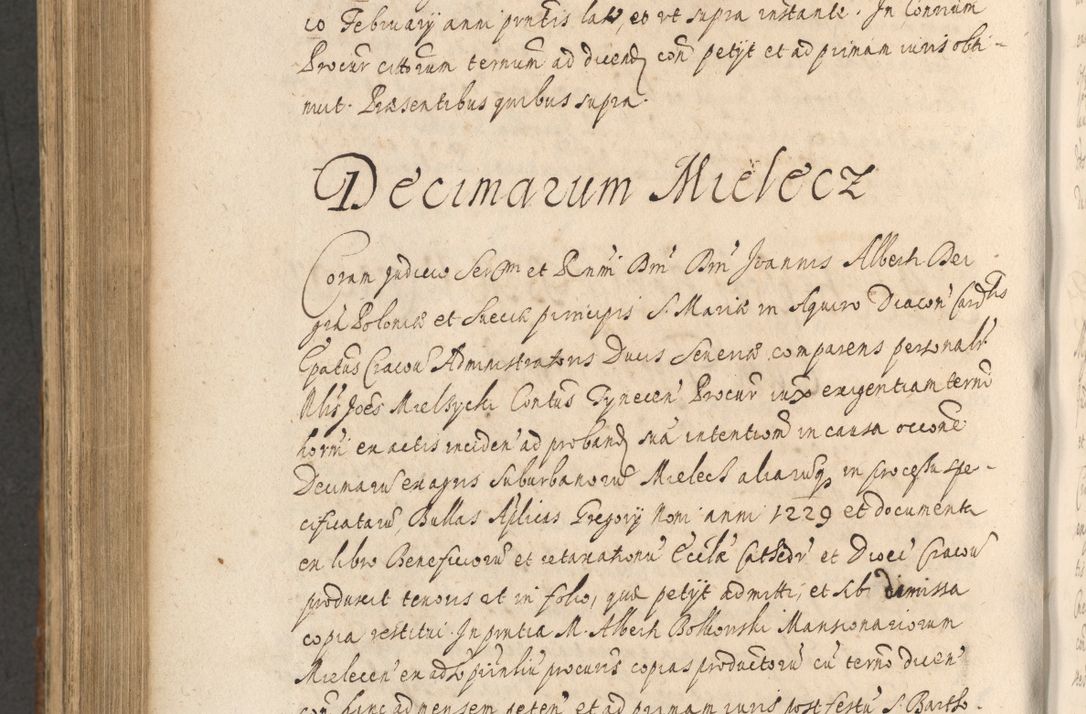 10 Februarij anni prntis lat, et ut supra instante. In Conrium
Procur citorum ternum ad dicend con petijt et ad primam iuris obti-
nuit. Præsentibus quibus supra.
Decimarum Mielecz
Coram Judicio Serm et Rnmi Dni Dni Joannis Alberti Dei
grã Poloniæ et Sueciæ principis S. Mariæ in Aquiro Diacon Cardlis
Epatus Cracou Administratoris Ducis Seueriæ comparens personalr
Nlis Joes Mielżycki Contus Tynecen Procur iuxta exigentiam termi
horni ex actis inciden ad proband suã intentionẽ in causa occone
Decimarũ ex agris suburbanorũ Mielech aliarumq in processu spe-
cificatarũ, Bullas Aplicas Gregorij Noni anni 1229 et documenta
ex libro Beneficiorũ et retaxationũ Ecclæ Cathedr et Dioec Cracou
produxit tenoris ut in folio, quæ petijt admitti, et sibi dimissa
copia restitui. In pntia M. Alberti Bolkowski Mansionariorum
Mielecen ex adso prinliũ procuris copias productorũ cũ termo dicen
con hinc ad mensem peten et ad primam iuris post festũ S. Bartho-